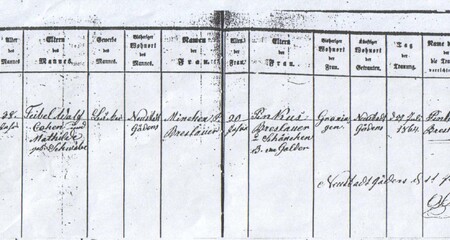 Alter
des
Mannes.
Eltern
des
Mannes.
Gewerbe
des
Mannes.
Bisheriger
Wohnort
des
Mannes.
Namen
der
Frau.
Alter
der
Frau.
Eltern
der
Frau.
Bisheriger
Wohnort
der
Frau.
Künftiger
Wohnort
der
Getrauten.
Tag
der
Trauung.
Name d
die Tra
verrichte
28
Jahre
Feibel Wolf
Cohen und
Mathilde
geb. Schwabe
Neustadt
Gödens
Minchen
Breslauer
20
Jahre
Pinkus
Breslauer
Schönchen
Neustadt
Gödens
Juli
1864.
Pink
Bres
Neustadtgödens d